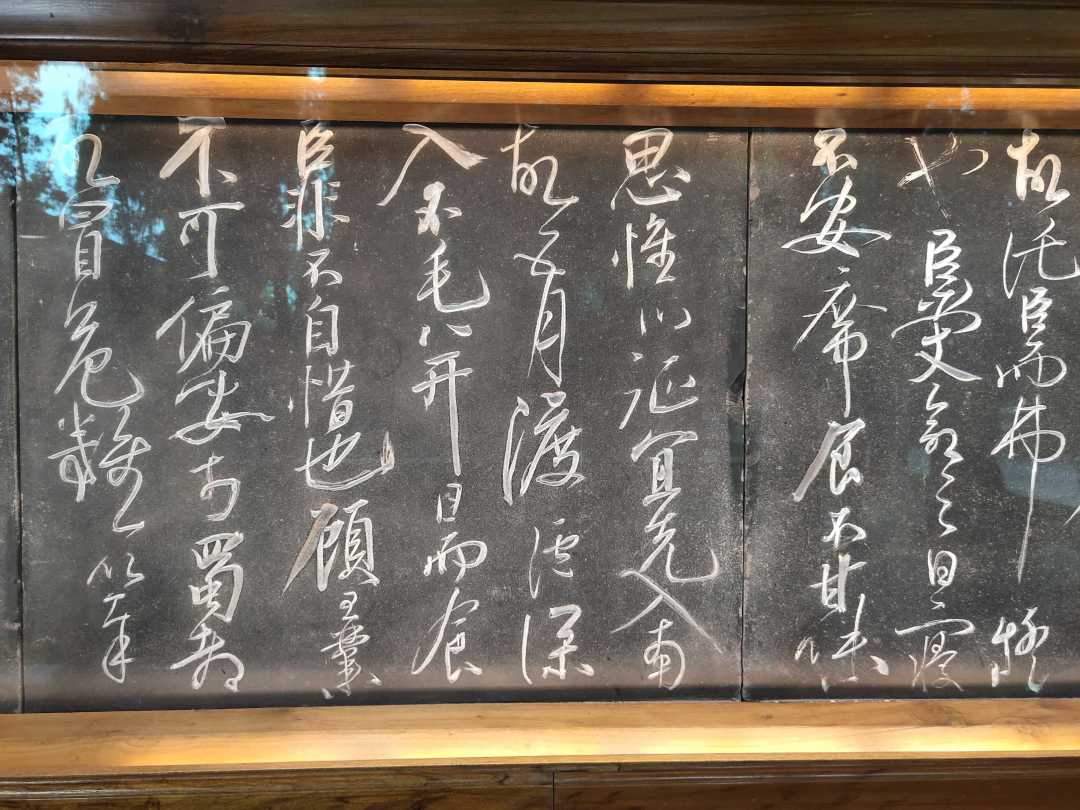 故託臣而弗疑
也臣受命之日寢
不安席食不甘味
思惟北征宜先入南
故五月渡瀘深
入不毛并日而食
臣非不自惜也顧王業
不可偏安於蜀都
故冒危難以奉